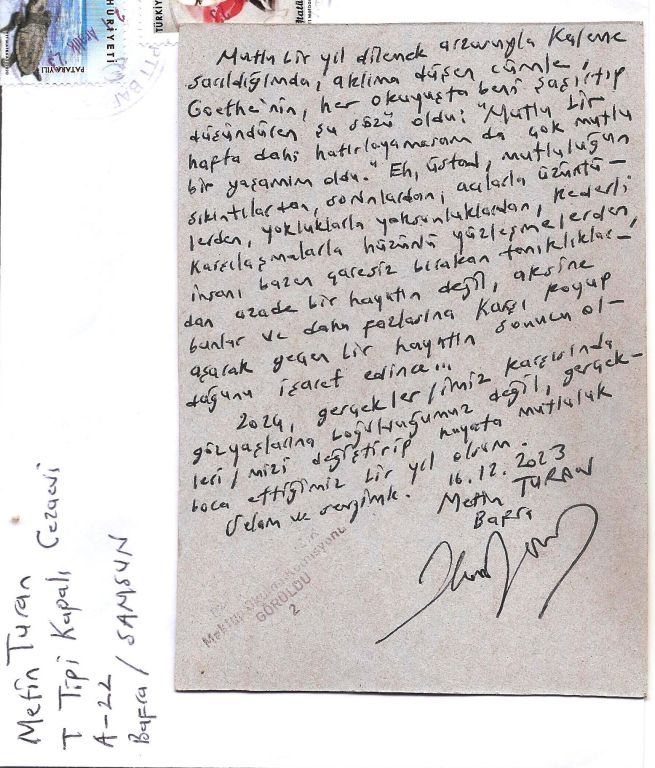 HURİYETİ
PATARA YILI
TÜRKİY
Mutlu bir yıl dilemek arzusuyla kaleme
sarıldığımda, aklıma düşen cümle,
Goethe'nin, her okuyuşta beni şaşırtıp
düşündüren şu sözü oldu: "Mutlu bir
hafta dahi hatırlayamasam da çok mutlu
bir yaşamım oldu." Eh, üstad, mutluluğun
sıkıntılardan, sorunlardan, acılarla üzüntü-
lerden, yokluklarla yoksunluklardan, kederli
karşılaşmalarla hüzünlü yüzleşmelerden,
insanı bazen çaresiz bırakan tanıklıklar-
dan azade bir hayatın değil, aksine
bunlar ve daha fazlasına karşı koyup
aşarak geçen bir hayatın sonucu ol-
duğunu işaret edince...
2024, gerçekler/imiz karşısında
gözyaşlarına boğulduğumuz değil, gerçek-
leri/mizi değiştirip hayata mutluluk
boca ettiğimiz bir yıl olsun.
Selam ve sevgimle. 16.12.2023
Metin TURAN
Bafra
Mektup Okuma Komisyonu
GÖRÜLDÜ
2
Metin Turan
T Tipi Kapalı Cezaevi
A-22
Bafra / SAMSUN